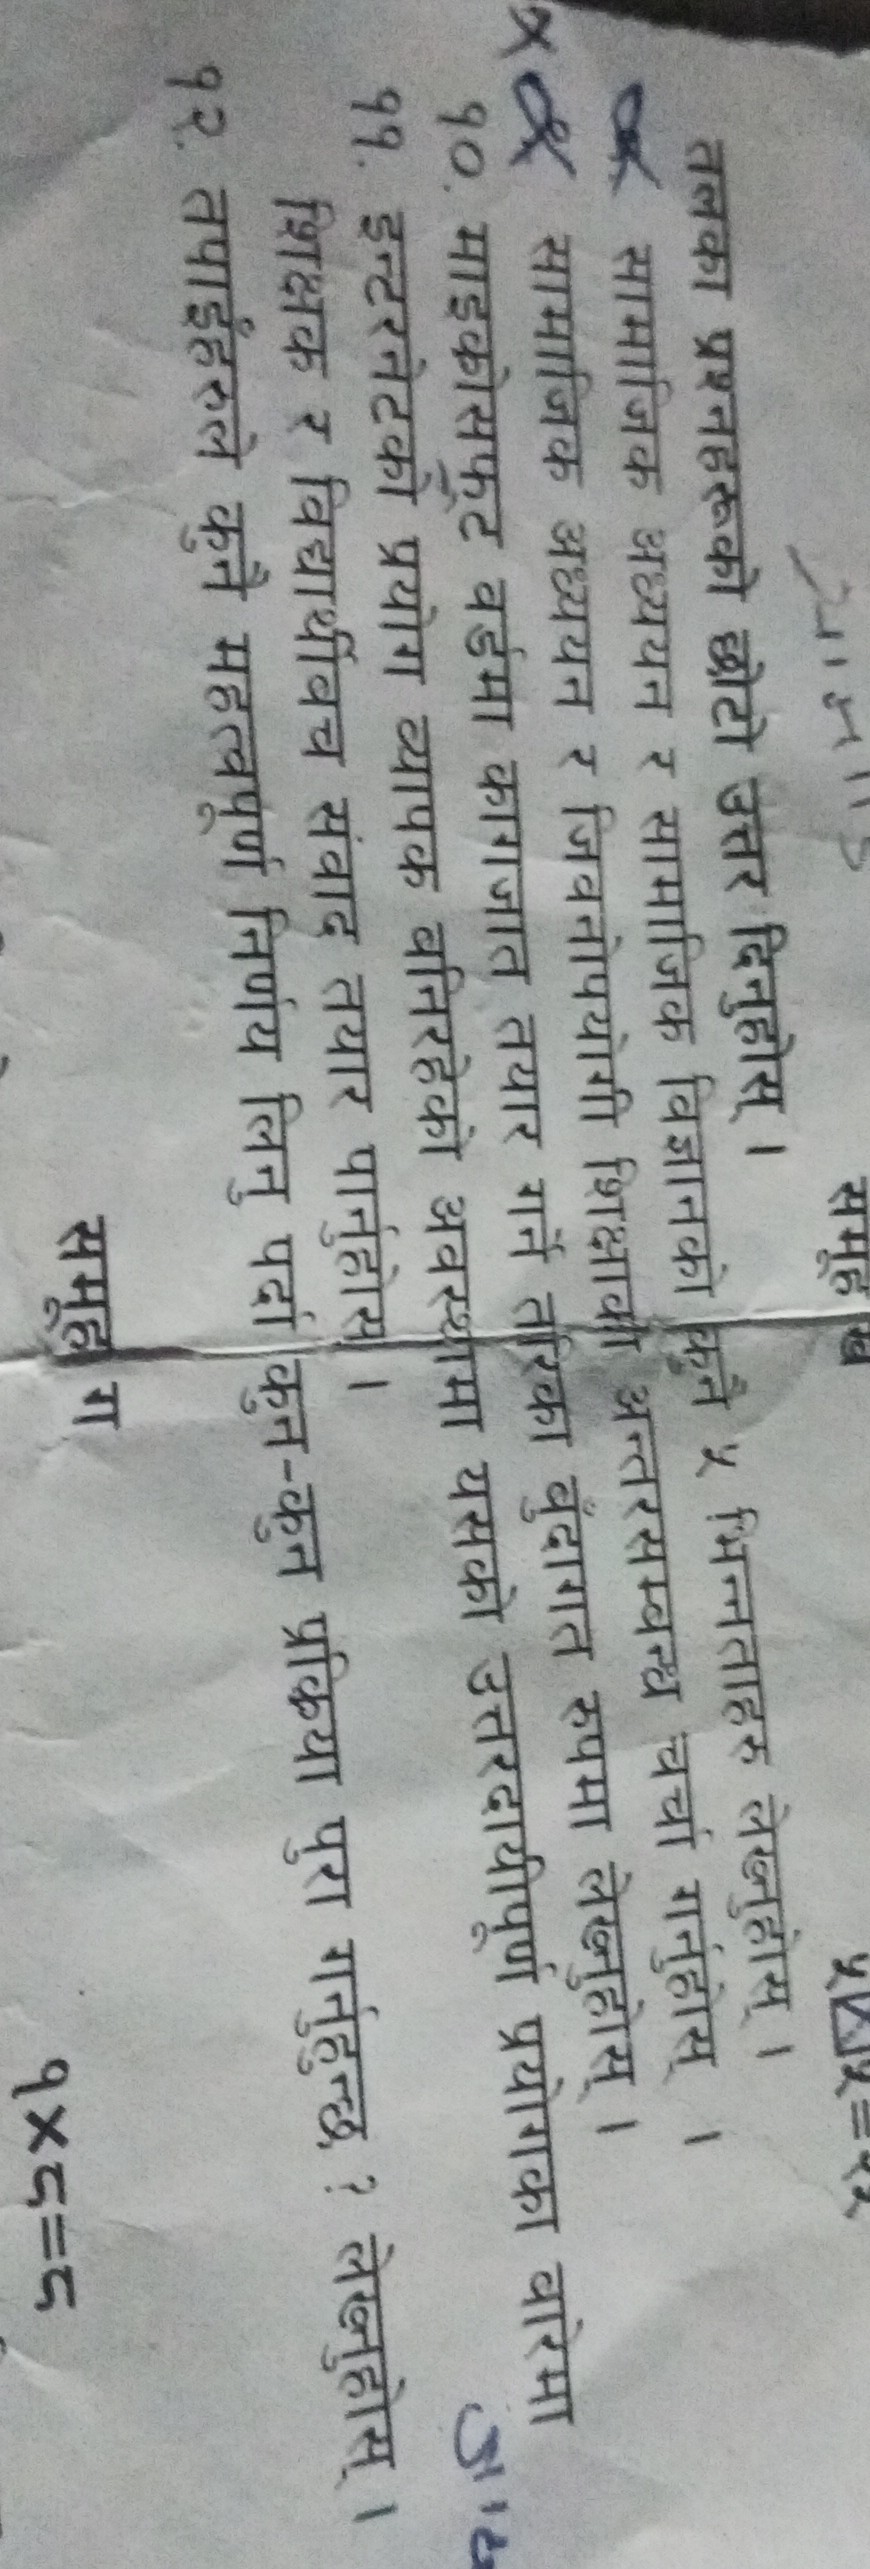 समूह ख
तलका प्रश्नहरूको छोटो उत्तर दिनुहोस् ।
सामाजिक अध्ययन र सामाजिक विज्ञानको कुनै ५ भिन्नताहरु लेख्नुहोस् ।
सामाजिक अध्ययन र जिवनोपयोगी शिक्षाको अन्तरसम्बन्ध चर्चा गर्नुहोस् ।
१०. माइक्रोसफ्ट वर्डमा कागजात तयार गर्ने तरिका बुंदागत रुपमा लेख्नुहोस् ।
११. इन्टरनेटको प्रयोग व्यापक बनिरहेको अवस्थामा यसको उत्तरदायीपूर्ण प्रयोगका बारेमा
शिक्षक र विद्यार्थीबिच संवाद तयार पार्नुहोस् ।
१२. तपाईंहरुले कुनै महत्वपूर्ण निर्णय लिनु पर्दा कुन-कुन प्रक्रिया पुरा गर्नुहुन्छ ? लेख्नुहोस् ।
समूह ग
१×८=८